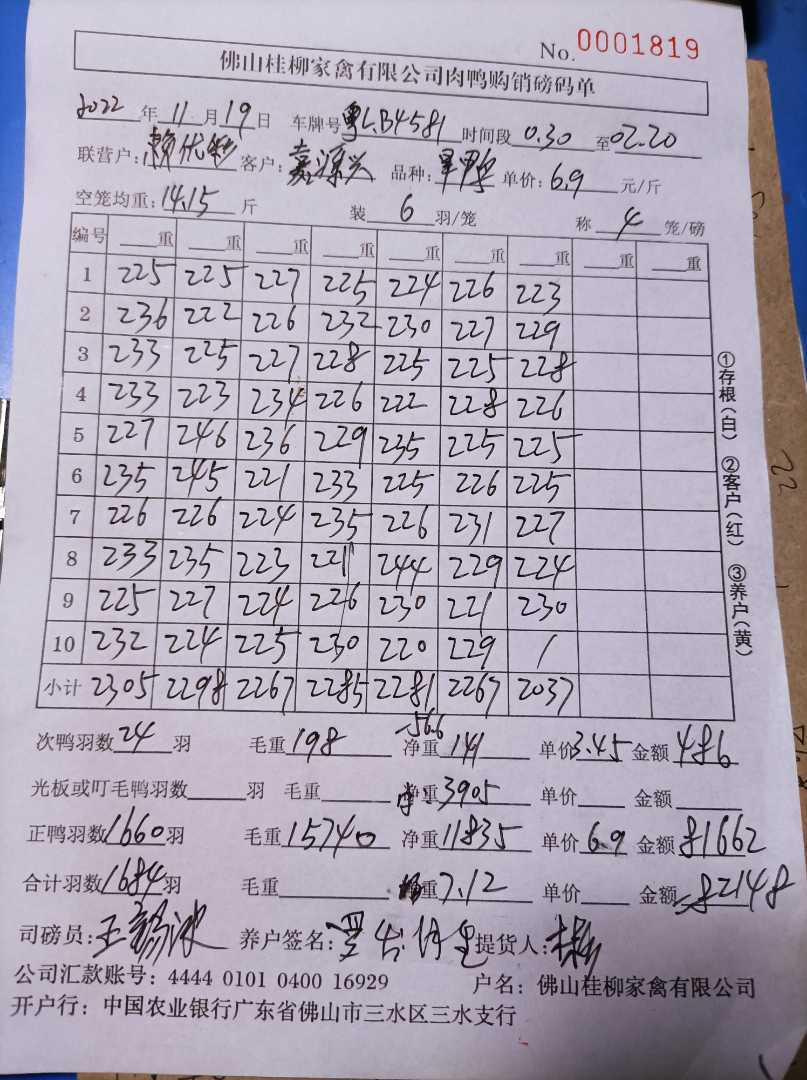 No. 0001819
佛山桂柳家禽有限公司肉鸭购销磅码单
2022 年 11 月 19 日 车牌号 粤L.B4581 时间段 0.30 至 02.20
联营户: 客户: 嘉源兴 品种: 旱鸭 单价: 6.9 元/斤
空笼均重: 14.15 斤 装 6 羽/笼 称 4 笼/磅
编号 重 重 重 重 重 重 重 重 重
1 225 225 227 225 224 226 223
2 236 222 226 232 230 227 229
3 233 225 227 228 225 225 228
4 233 223 234 226 222 228 226
5 227 246 236 229 235 225 225
6 235 245 221 233 225 226 225
7 226 226 224 235 226 231 227
8 233 235 223 221 244 229 224
9 225 227 224 226 230 221 230
10 232 224 225 230 220 229 /
小计 2305 2298 2267 2285 2281 2267 2037
-56.6
次鸭羽数 24 羽 毛重 198 净重 141 单价 3.45 金额 486
光板或叮毛鸭羽数 羽 毛重 重 3905 单价 金额
正鸭羽数 1660 羽 毛重 15740 净重 11835 单价 6.9 金额 81662
合计羽数 1684 羽 毛重 重 7.12 单价 金额 82148
司磅员: 养户签名: 提货人:
公司汇款账号: 4444 0101 0400 16929 户名: 佛山桂柳家禽有限公司
开户行: 中国农业银行广东省佛山市三水区三水支行
①存根(白) ②客户(红) ③养户(黄)